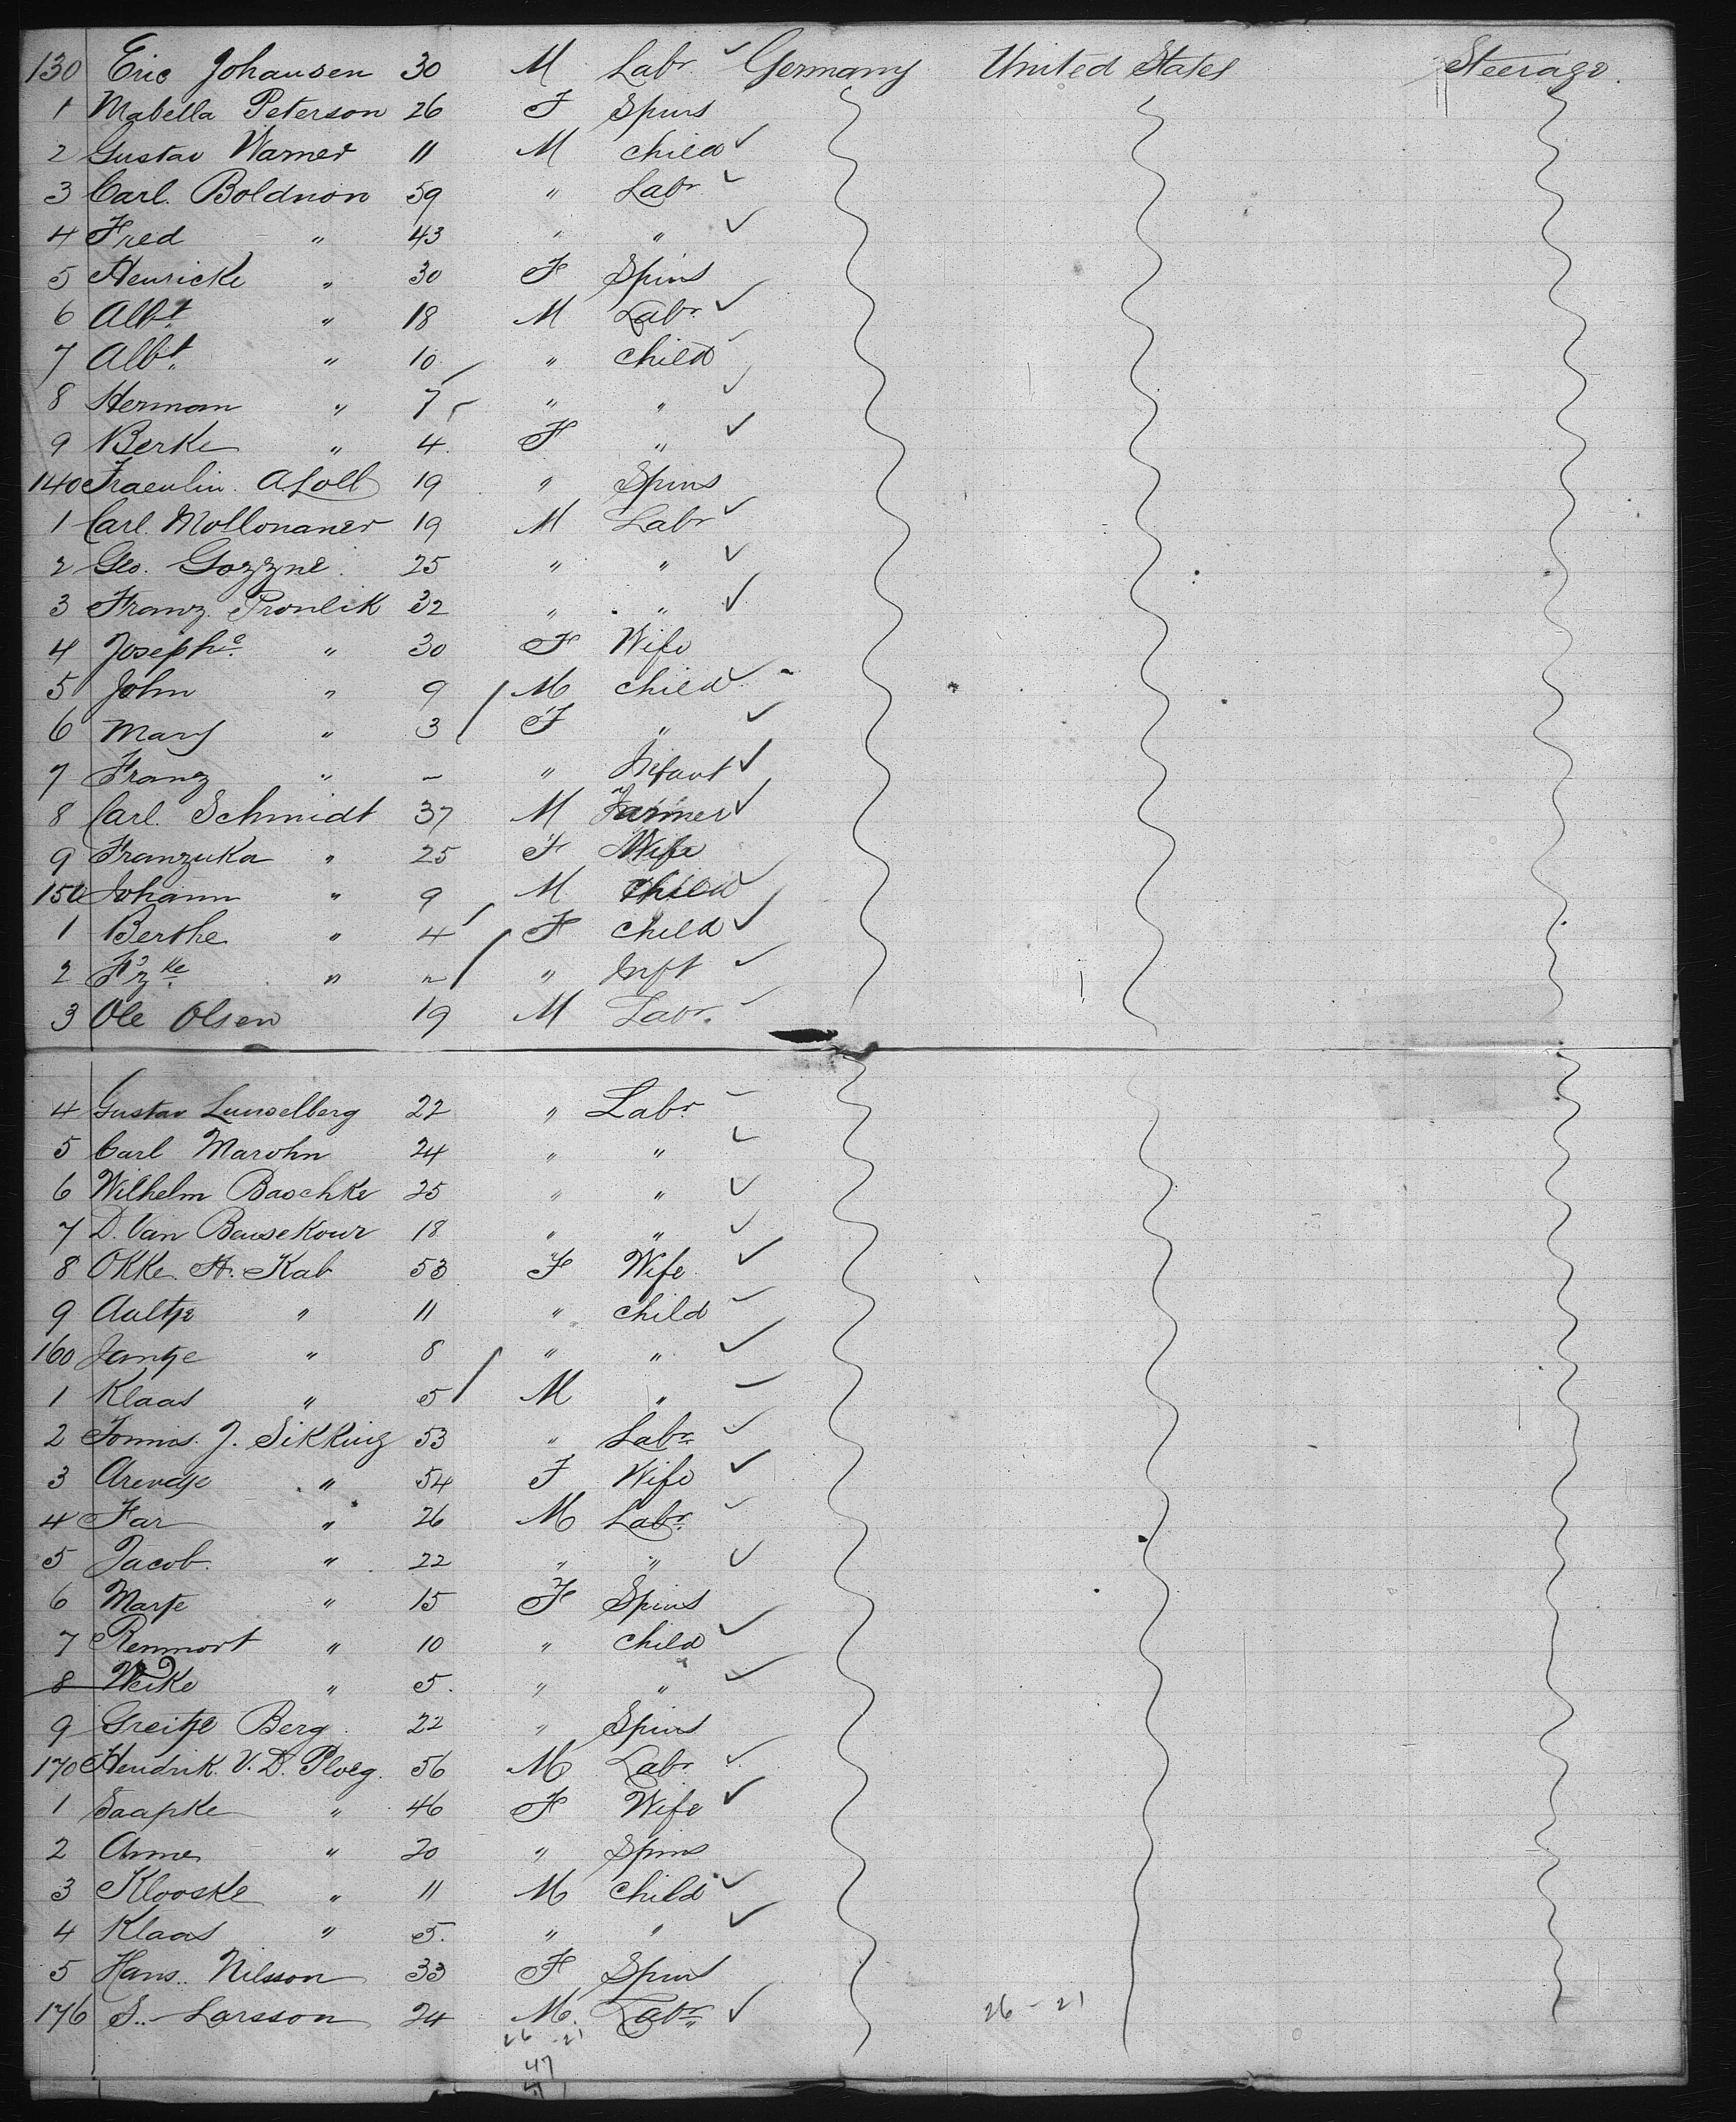 130 Eric Johansen 30 M Labr. ✓ Germany United States Steerage.
1 Mabella Peterson 26 F Spins
2 Gustav Warner 11 M child ✓
3 Carl. Boldnon 59 " Labr ✓
4 Fred " 43 " " ✓
5 Henricke " 30 F Spins
6 Albt. " 18 M Labr. ✓
7 Albt. " 10 " child
8 Herman " 7 " " ✓
9 Berke " 4. F " ✓
140 Fraeulin A Loll 19 " Spins
1 Carl. Mollonaner 19 M Labr ✓
2 Geo. Gozzne. 25 " " ✓
3 Franz. Pronlik 32 " " ✓
4 Josephe. " 30 F Wife
5 John " 9 M child ✓
6 Mary " 3 F " ✓
7 Franz " – " Infant ✓
8 Carl. Schmidt 37 M Farmer ✓
9 Franzuka " 25 F Wife
150 Johann " 9 M child ✓
1 Berthe " 4 F child ✓
2 Fzke. " " " Inft ✓
3 Ole Olsen 19 M Labr. ✓
4 Gustav 22 " Labr. ✓
5 Carl Marohn 24 " " ✓
6 Wilhelm Baschke 25 " " ✓
7 D. Van Beusekour 18 " " ✓
8 Okke. H. Kab 53 F Wife ✓
9 Aaltje " 11 " child ✓
160 Jantje " 8 " " ✓
1 Klaas " 5 M "
2 J. Sikking 53 " Labr. ✓
3 Arendje " 54 F Wife ✓
4 Far " 26 M Labr. ✓
5 Jacob. " 22 " " ✓
6 Martje " 15 F Spins
7 Renmort " 10 " child ✓
8 Weike " 5. " " ✓
9 Greitje Berg. 22 " Spins
170 Hendrik. V. D. Ploeg. 56 M Labr ✓
1 Saapke " 46 F Wife ✓
2 Anne " 20 " Spins
3 Klooske " 11 M child ✓
4 Klaas " 5. " " ✓
5 Hans.. Nilsson 33 F Spins
176 S.. Larsson 24 M. Labr. ✓ 26 – 21
26 – 21
47